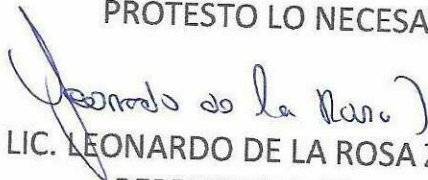 PROTESTO LO NECESA
Leonardo de la Rosa
LIC. LEONARDO DE LA ROSA